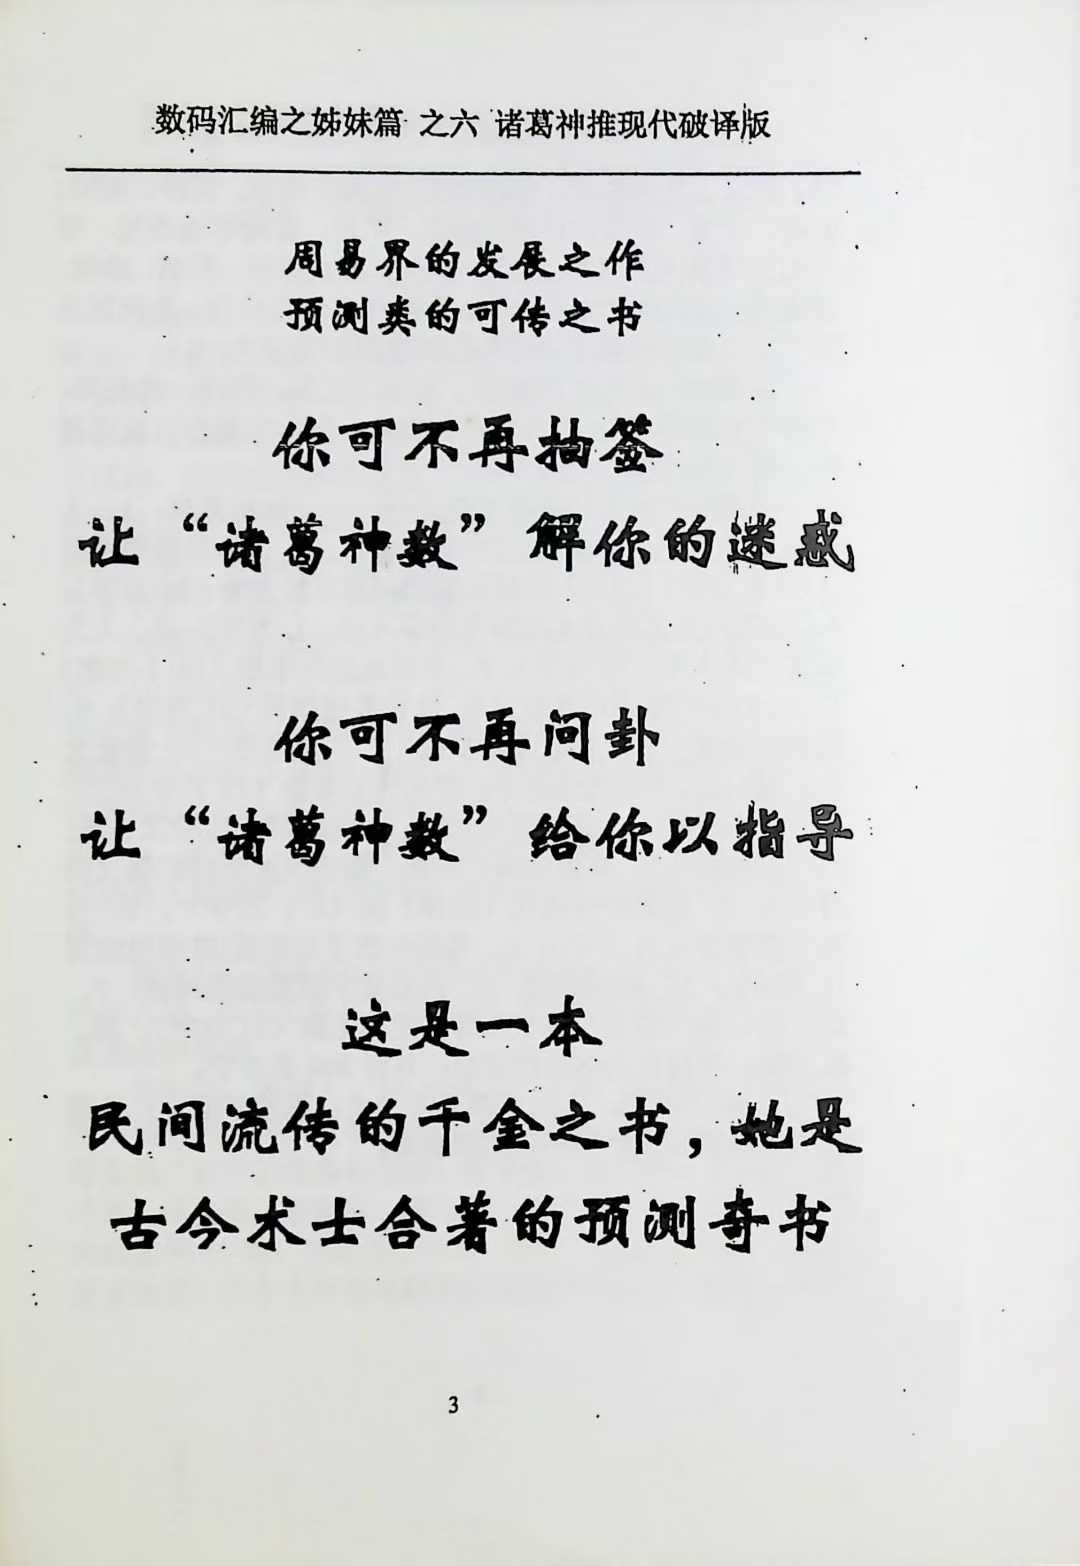 数码汇编之姊妹篇 之六 诸葛神推现代破译版
周易界的发展之作
预测类的可传之书
你可不再抽签
让“诸葛神数”解你的迷惑
你可不再问卦
让“诸葛神数”给你以指导
这是一本
民间流传的千金之书，她是
古今术士合著的预测奇书
3